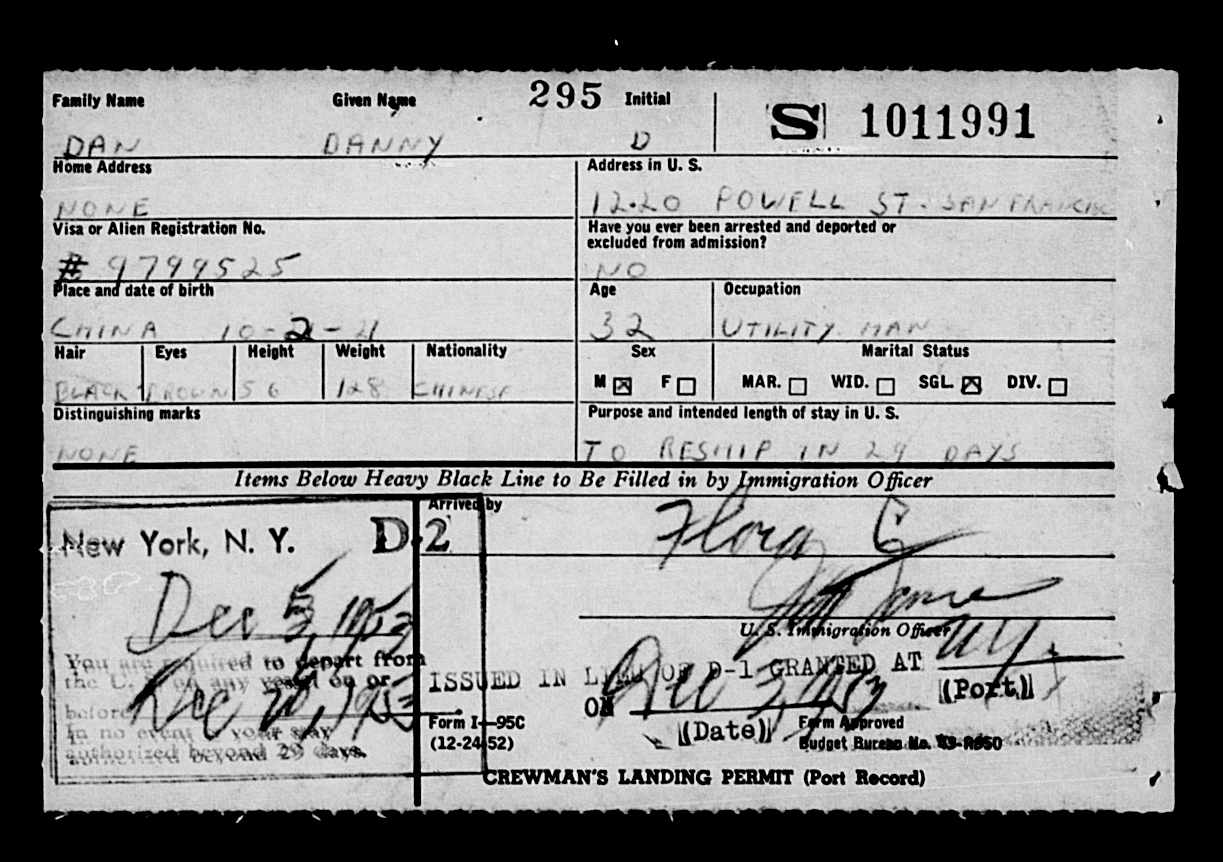 Family Name Given Name 295 Initial S 1011991
DAN DANNY D
Home Address Address in U. S.
NONE 1220 POWELL ST. SAN FRANCISC
Visa or Alien Registration No. Have you ever been arrested and deported or
excluded from admission?
# 9799525 NO
Place and date of birth Age Occupation
CHINA 10-2-21 32 UTILITY MAN
Hair Eyes Height Weight Nationality Sex Marital Status
M F MAR. WID. SGL. DIV.
BLACK BROWN 5 6 128 CHINESE
Distinguishing marks Purpose and intended length of stay in U. S.
NONE TO RESHIP IN 29 DAYS
Items Below Heavy Black Line to Be Filled in by Immigration Officer
Arrived by
New York, N. Y. D-2
Flora C
Dec 1953
U. S. Immigration Officer
You are required to depart from
the U. S. on any vessel on or
before Dec 1953
In no event is your stay
authorized beyond 29 days.
ISSUED IN LIEU OF D-1 GRANTED AT N.Y.
(Port)
ON Dec 3, 1953
(Date)
Form I-95C
(12-24-52)
Form Approved
Budget Bureau No.
CREWMAN'S LANDING PERMIT (Port Record)